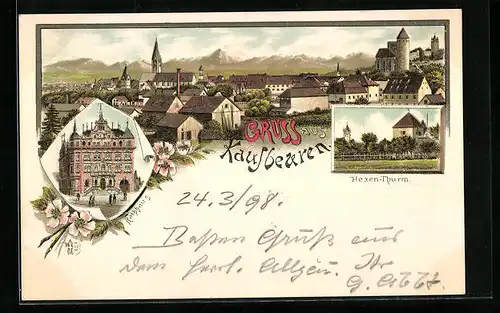 GRUSS aus
Kaufbeuren.
Hexen-Thurm.
Rathhaus
24.3/98.
Besten Gruß aus
dem Allgäu. Ihr
G.